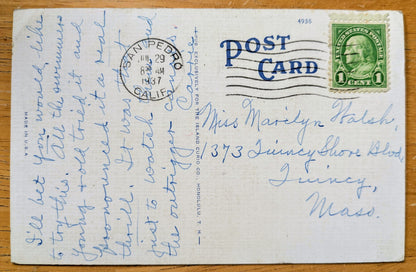 I'll bet you would like
to try this. All the swimmers
young & old tried it and
pronounced it a real
thrill. It was good
just to watch
the outrigger canoes.
Carrie
MADE IN U.S.A.
4935
POST
CARD
SAN PEDRO
JUL 29
8 AM
1937
CALIF.
UNITED STATES POSTAGE
1 CENT 1
FOR THE ISLAND CURIO CO., HONOLULU, T. H.
Miss Marilyn Walsh,
373 Quincy Shore Blvd,
Quincy,
Mass.